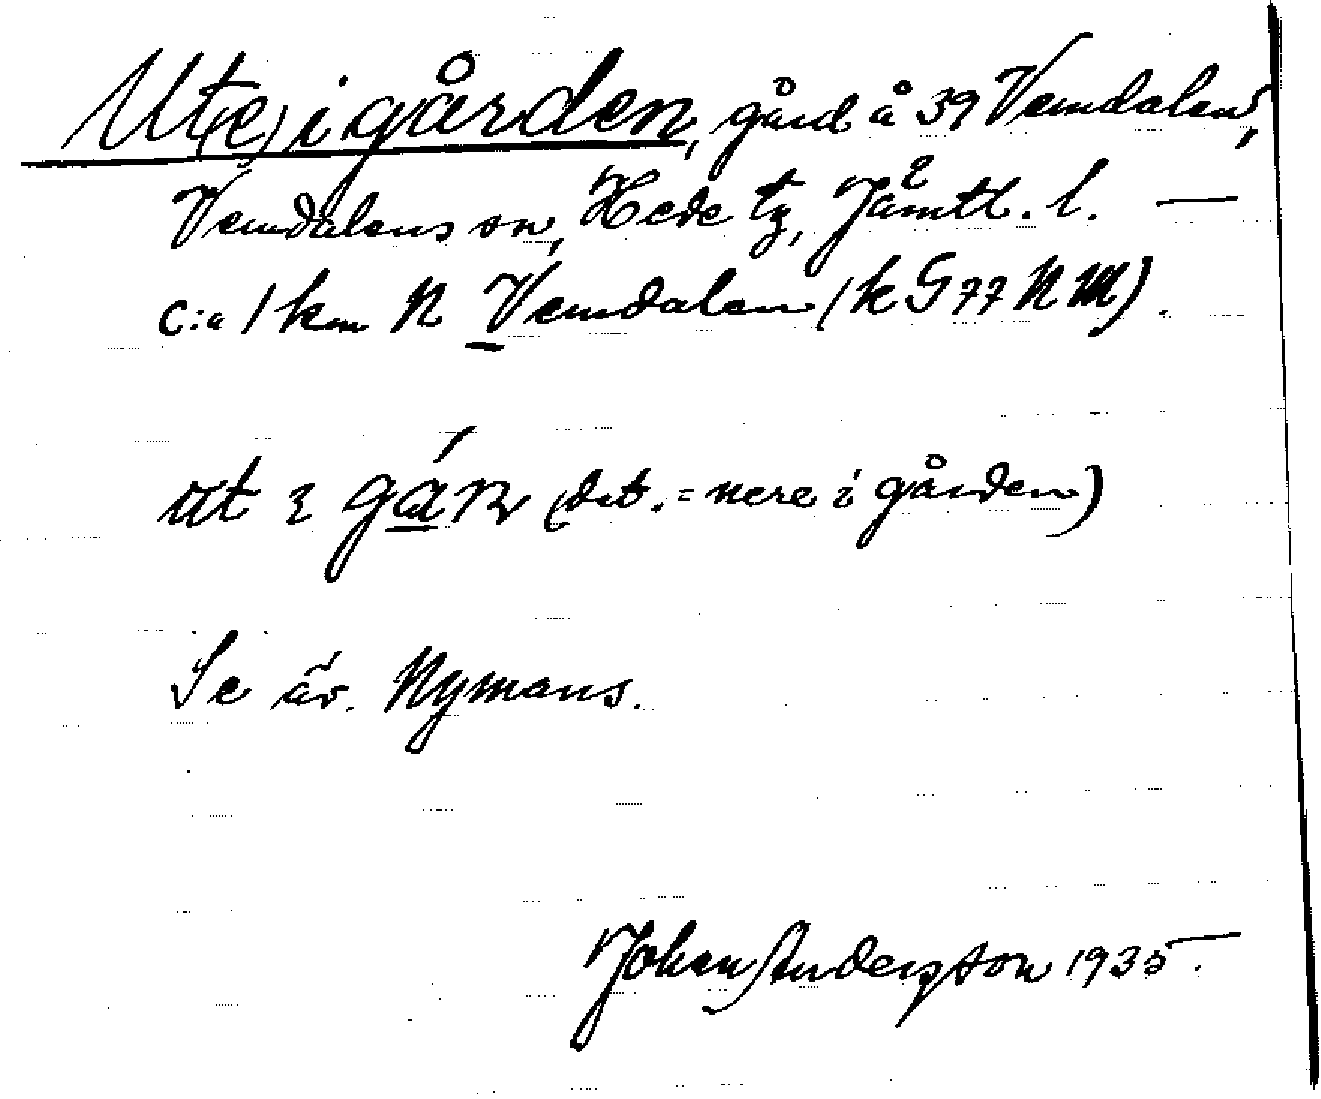 Ut(e) i gården, gård å 39 Vemdalen,
Vemdalens sn, Hede tg, Jämtl. l. —
c:a 1 km N Vemdalen (k G 77 N M).
ut i gán (det. = nere i gården)
Se äv. Nymans.
Johan Andersson 1935.